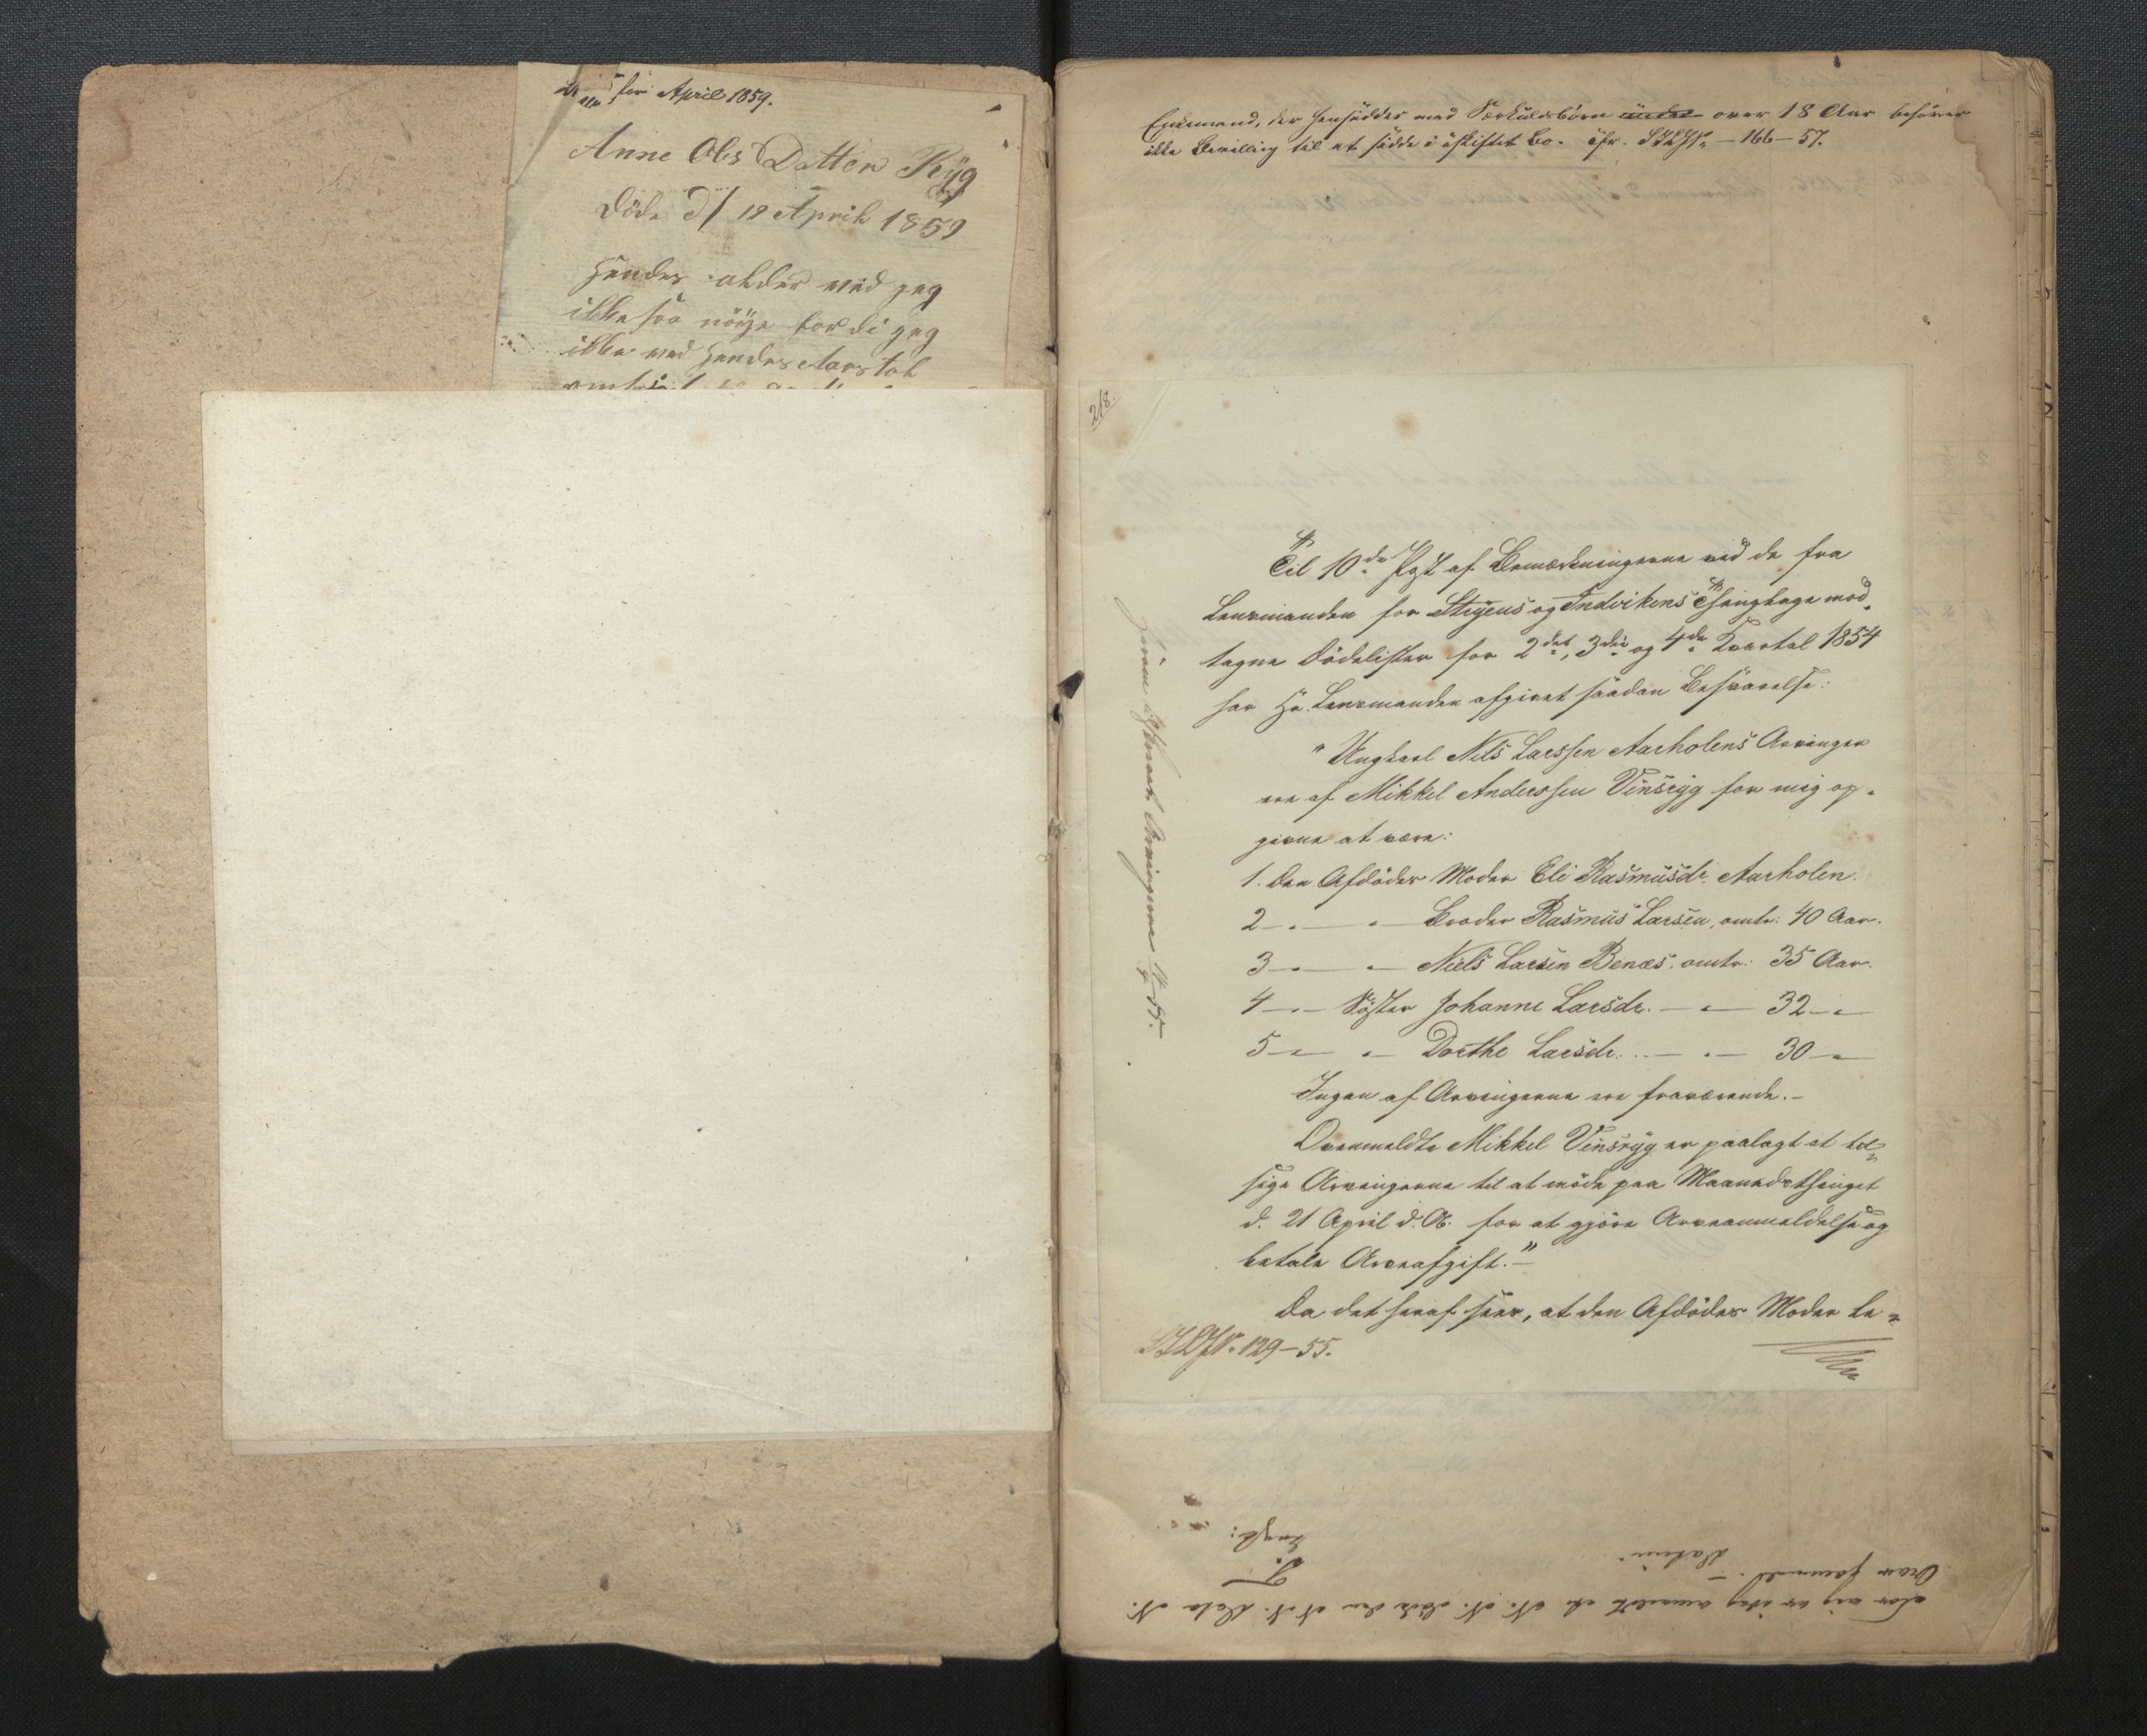 for April 1859.
Anne Oles Datter Ryg
döde d/ 18 April 1859
hendes alder ved jeg
ikke saa nöye fordi jeg
ikke ved hendes Aars tal
Enkemand, der hensidder med Særkuldsbörn under over 18 Aar behöver
ikke Bevilling til at sidde i uskiftet Bo. cfr. – 166 – 57.
218.
Til 10de Pkt af Bemærkningerne ved de fra
Lensmanden for Stryens og Indvikens Thinglage mod-
tagne Dödslister for 2det, 3die og 4de Kvartal 1854
har Hr. Lensmanden afgivet saadan Besvarelse:
"Ungkarl Nils Larssen Aarholens Arvinger
ere af Mikkel Anderssen Vinsryg for mig op-
givne at være:
1. Den Afdödes Moder Eli Rasmusdr. Aarholen.
2 – " – " – Broder Rasmus Larsen, omtr: 40 Aar.
3 – " – " – Niels Larsen Benes. omtr: 35 Aar.
4 – " – Söster Johanne Larsdr. – " – 32 – " –
5 – " – " – Dorthe Larsdr. . . – " – 30 – " –
Ingen af Arvingerne ere fraværende. –
Ovenmeldte Mikkel Vinsryg er paalagt at til-
sige Arvingerne til at möde paa Maanedsthinget
d. 21 April d. A. for at gjöre Arveanmeldelse og
betale Arveafgift." –
Da det heraf sees, at den Afdödes Moder le-
129 – 55.
Arvingerne 55.
For mig er idag anmeldt at N. N. döde den